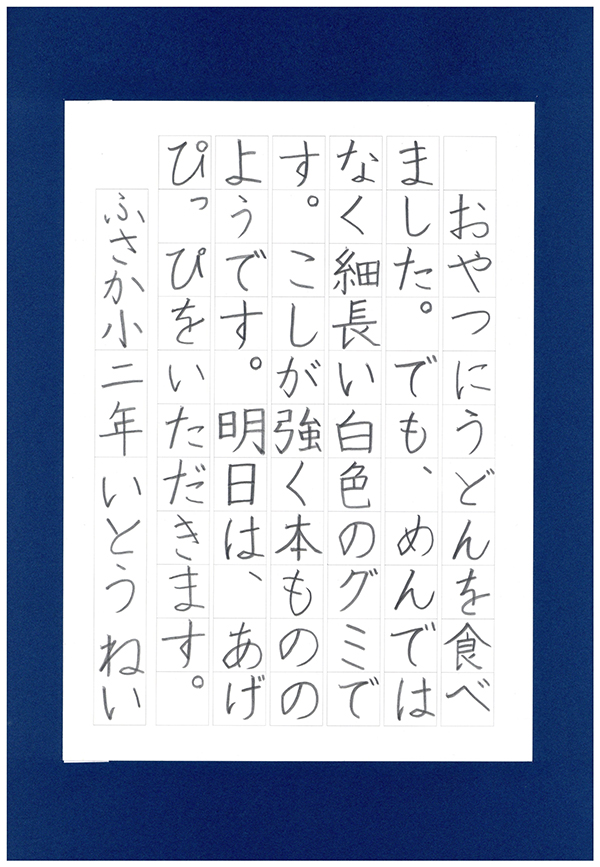 おやつにうどんを食べ
ました。でも、めんでは
なく細長い白色のグミで
す。こしが強く本ものの
ようです。明日は、あげ
ぴっぴをいただきます。
ふさか小二年 いとう ねい